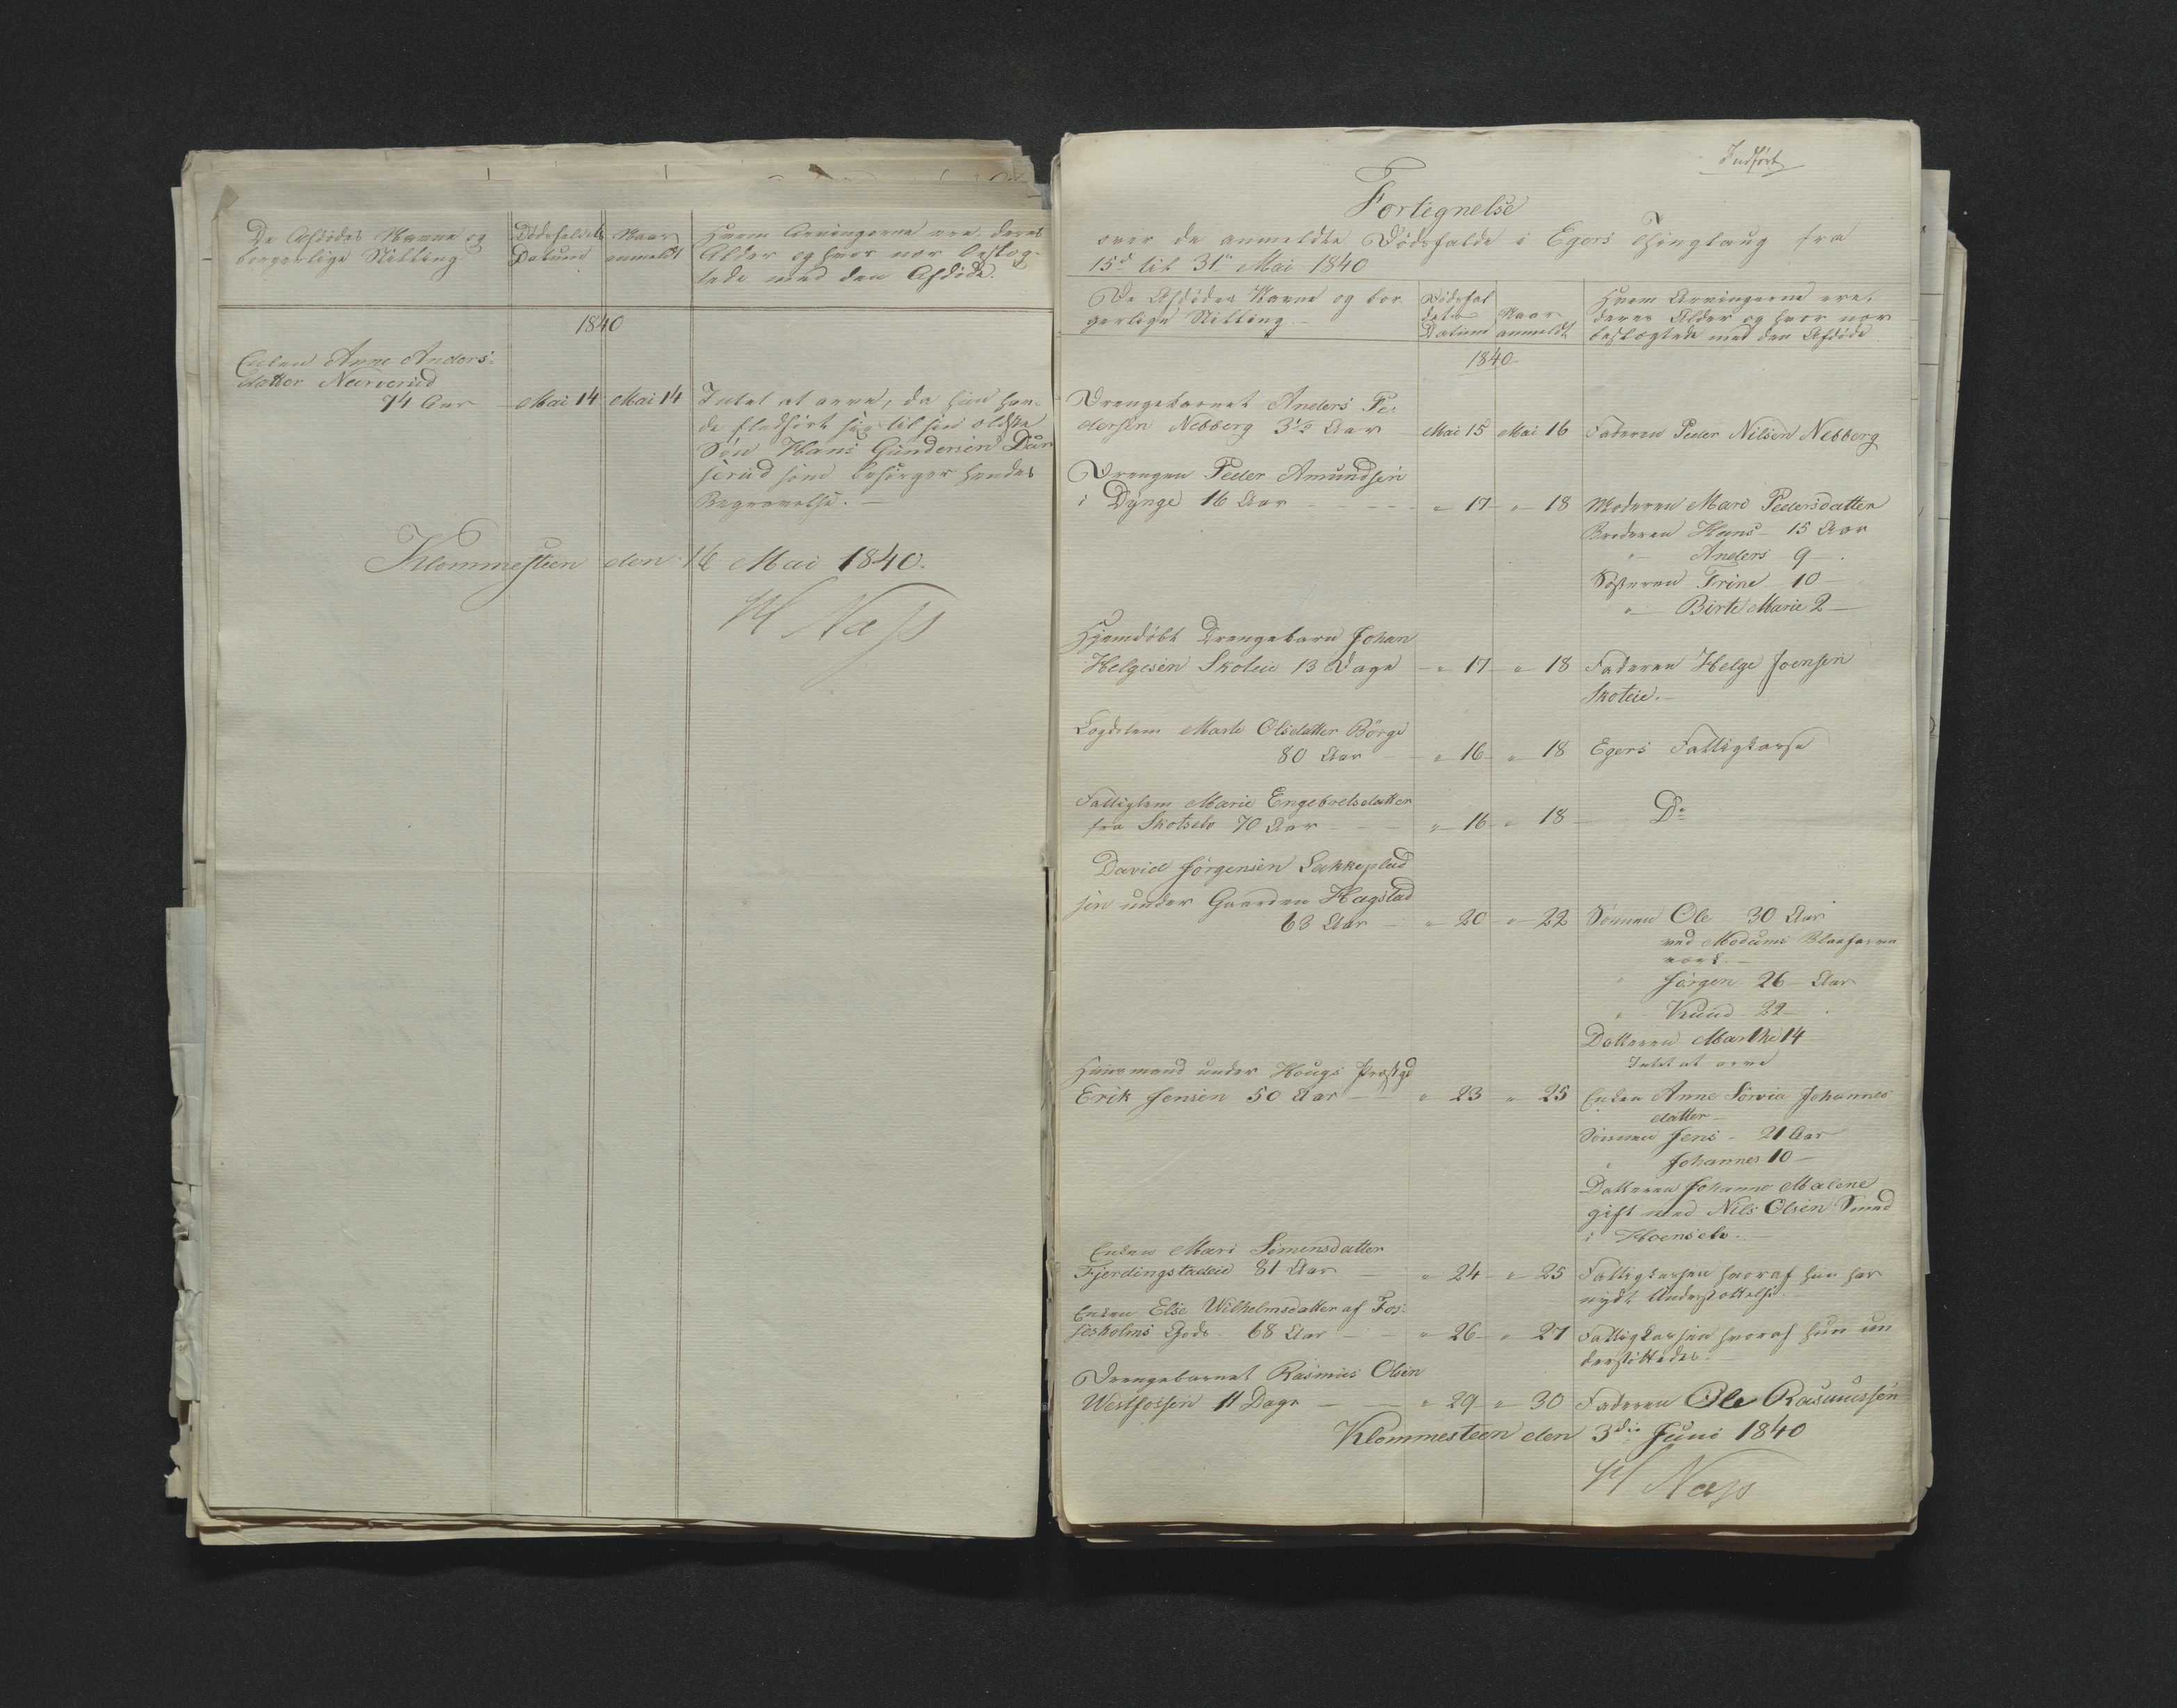 De Afdødes Navne og
borgerlige Stilling
Dødsfaldets
Datum
Naar
anmeldt
Hvem Arvingerne ere, deres
Alder og hvor nær beslæg-
tede med den Afdøde.
1840
Enken Anne Anders-
datter Narverud
74 Aar - Mai 14 Mai 14 Intet at arve, da hun hav-
de fladført sig til sin ældste
Søn Hans Gundersen
serud som besørger hendes
Begravelse. —
Klommesteen den 16 Mai 1840.
Næss
Indført
Fortegnelse
over de anmeldte Dødsfalde i Egers Thinglaug fra
15d til 31te Mai 1840
De Afdødes Navne og bor
gerlige Stilling
Dødsfal
dets
Datum
Naar
anmeldt
Hvem Arvingerne ere,
deres Alder og hvor nær
beslægtede med den Afdøde
1840
Drengebarnet Anders Pe-
dersen Nebberg 3½ Aar Mai 15 Mai 16 Faderen Peder Nilsen Nebberg
Drengen Peder Amundsen
i Dynge 16 Aar - - - - " 17 " 18 Moderen Mari Pedersdatter
Broderen Hans - 15 Aar
" Anders 9 -
Søsteren Trine 10 —
" Birte Marie 2 —
Hjemdøbt Drengebarn Johan
Helgesen Skoteie 13 Dage - " 17 - " 18 Faderen Helge Joensen
Skoteie. —
Lægdslem Marte Olsdatter Børge
80 Aar - " 16 - " 18 Egers Fattigkasse
Fattiglem Marie Engebretsdatter
fra Skotselv 70 Aar - - " 16 - " 18 - Do
David Jørgensen Bakkeplad
sen under Gaarden Hagstad
63 Aar - " 20 - " 22 Sønnen Ole 30 Aar
ved Modums Blaafarve
værk. —
" Jørgen 26 - Aar
" Knud 22 -
Datteren Marthe 14
Intet at arve
Huusmand under Hougs Præstgd
Erik Jensen 50 Aar — " 23 " 25 Enken Anne Sørvia Johannes
datter —
Sønnen Jens - 21 Aar
" Johannes 10 —
Datteren Johanne Malene
gift med Nils Olsen Smed
i Hoenselv. —
Enken Mari Simensdatter
Fjerdingstadeie 81 Aar — " 24 - " 25 Fattigkassen hvoraf hun har
nydt Understøttelse.
Enken Else Wilhelmsdatter af Fos-
sesholms Gods. 68 Aar - - " 26 - " 27 Fattigkassen hvoraf hun un
derstøttedes.
Drengebarnet Rasmus Olsen
Westfossen 11 Dage — — " 29 - " 30 Faderen Ole Rasmussen
Klommesteen den 3die Juni 1840
Næss